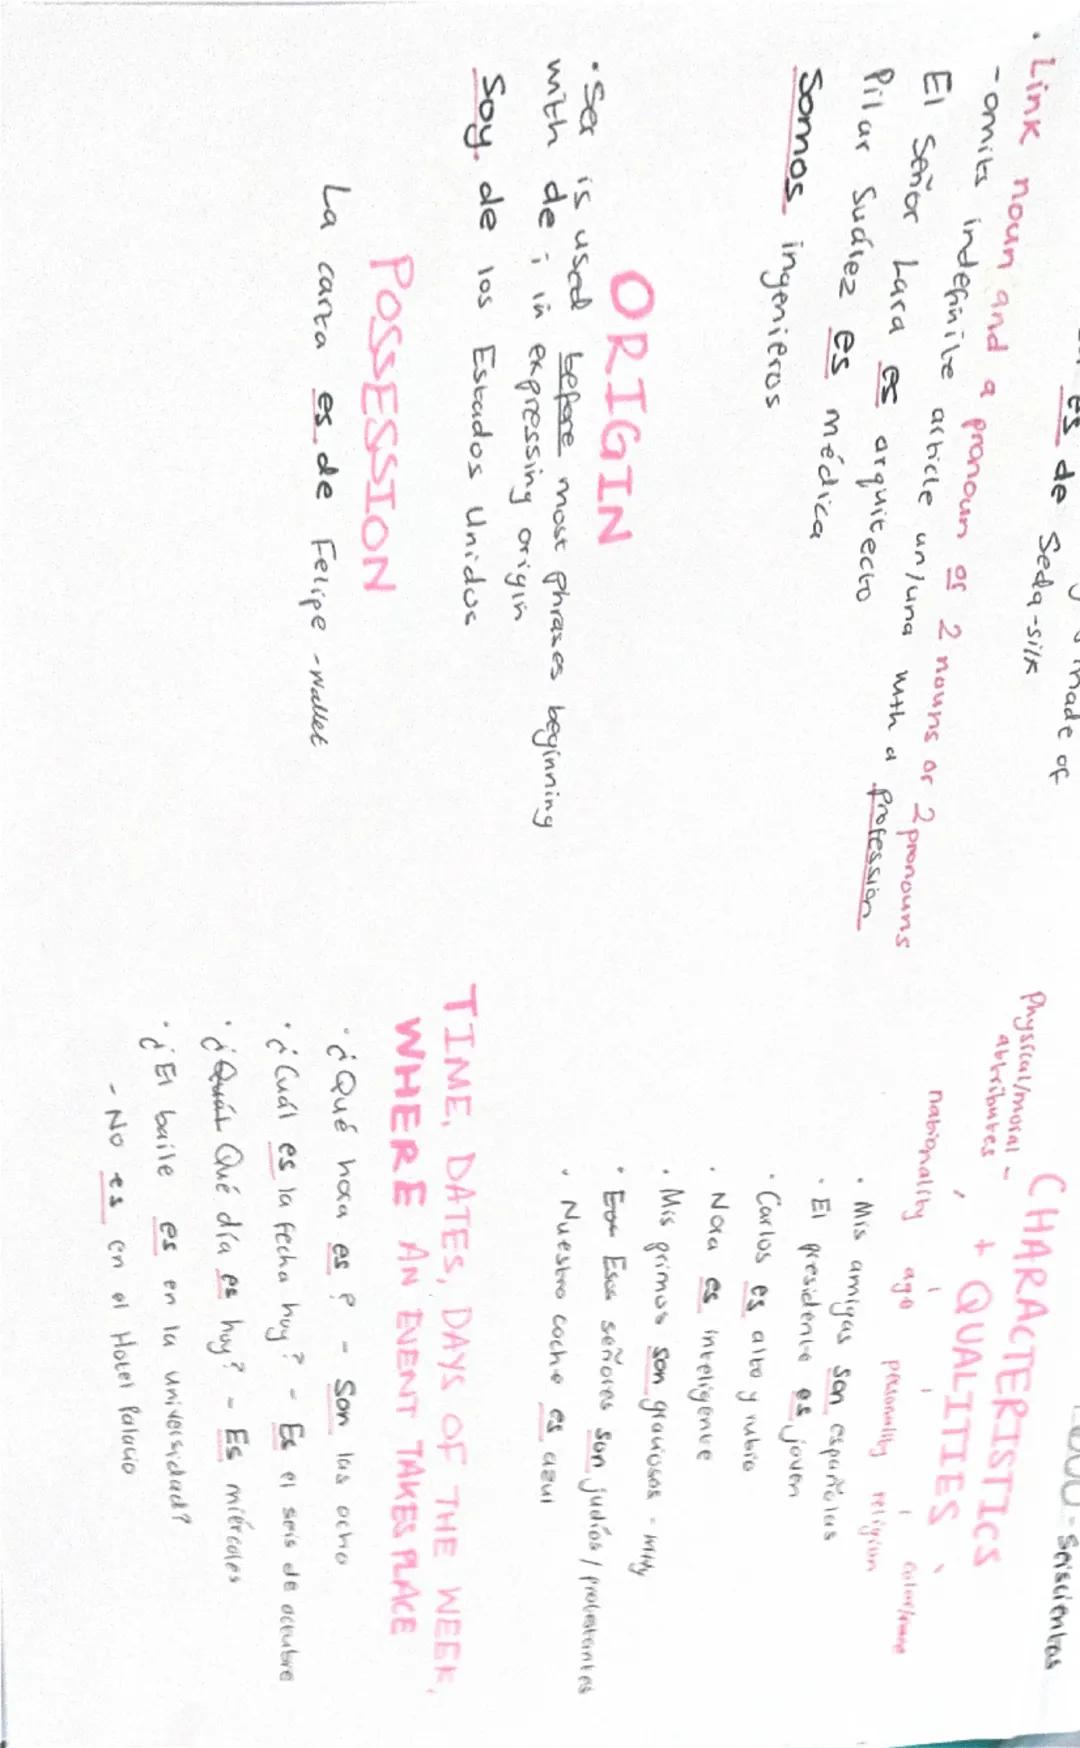 made of
es de Seda-silk
· Link noun and a pronoun or 2 nouns or 2 pronouns
- omits indefinite article un/una with a Profession
El Señor Lara es arquitecto
Pilar Suárez es médica
Somos ingenieros
ORIGIN
· Ser is used before most phrases beginning
with de ; in expressing origin
Soy de los Estados Unidos
POSSESSION
La carta es de Felipe - Wallet
- Seiscientos
CHARACTERISTICS
+ QUALITIES
Physical/moral -
attributes
nationality, age, personality, religion,
· Mis amigas son españolas
· El presidente es joven
· Carlos es alto y rubio
· Nora es inteligente
· Mis primos son graciosos -
· Esos señores son judíos / protestantes
· Nuestro coche es azul
TIME, DATES, DAYS OF THE WEEK,
WHERE AN EVENT TAKES PLACE
· ¿Qué hora es? - Son las ocho
· ¿Cuál es la fecha hoy? - Es el seis de octubre
· ¿Quál Qué día es hoy? - Es miércoles
· ¿El baile es en la universidad?
- No es en el Hotel Palacio